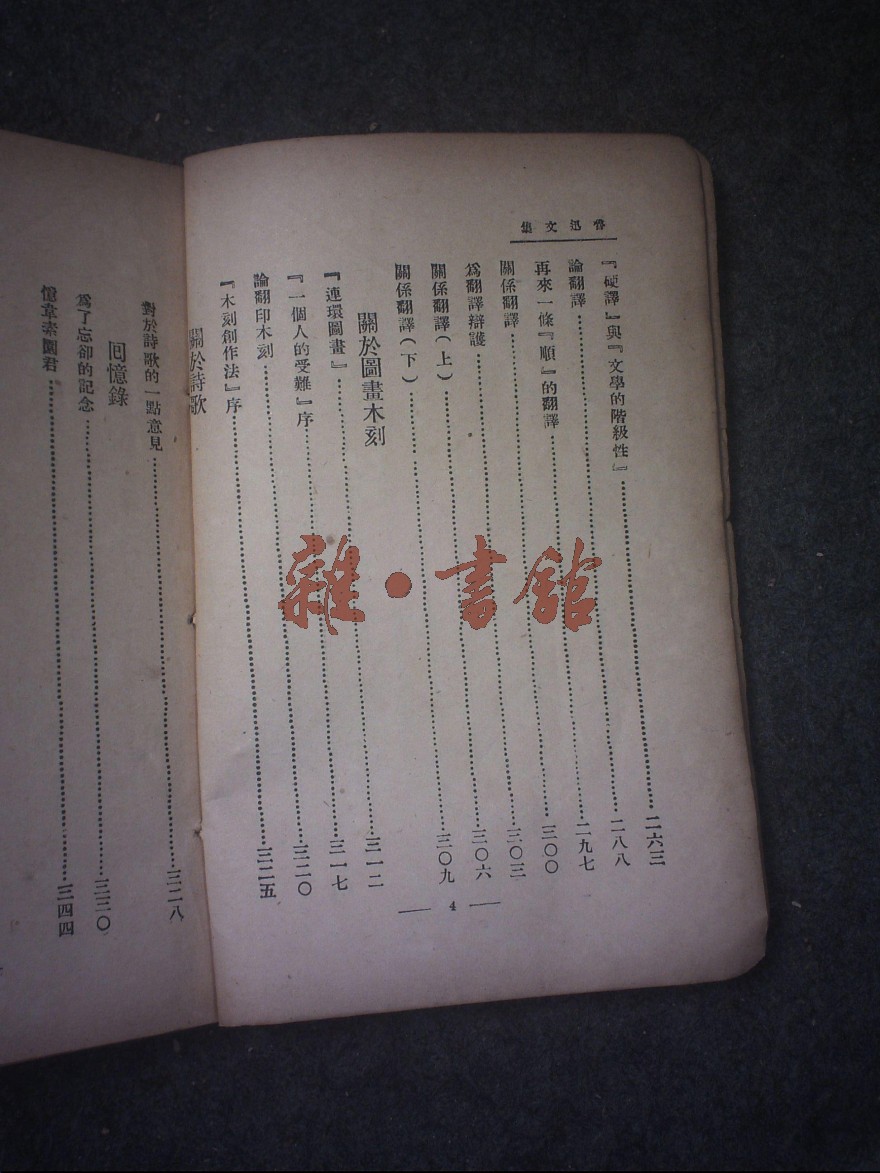 魯迅文集
『硬譯』與『文學的階級性』……二六三
論翻譯……二八八
再來一條『順』的翻譯……二九七
關係翻譯……三〇〇
爲翻譯辯護……三〇三
關係翻譯(上)……三〇六
關係翻譯(下)……三〇九
關於圖畫木刻
『連環圖畫』……三一二
『一個人的受難』序……三一七
論翻印木刻……三二〇
『木刻創作法』序……三二五
— 4 —
關於詩歌
對於詩歌的一點意見……三二八
回憶錄
爲了忘卻的記念……三三〇
憶韋素園君……三四四
雜·書館